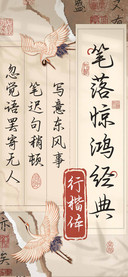 笔落惊鸿经典
写意东风事
笔迟句稍顿
忽觉语罢寄无人
行楷体